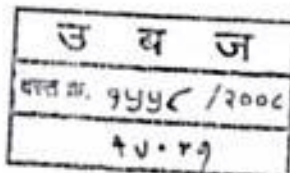 उ ब ज
दस्त क्र. १५५८ /२००८